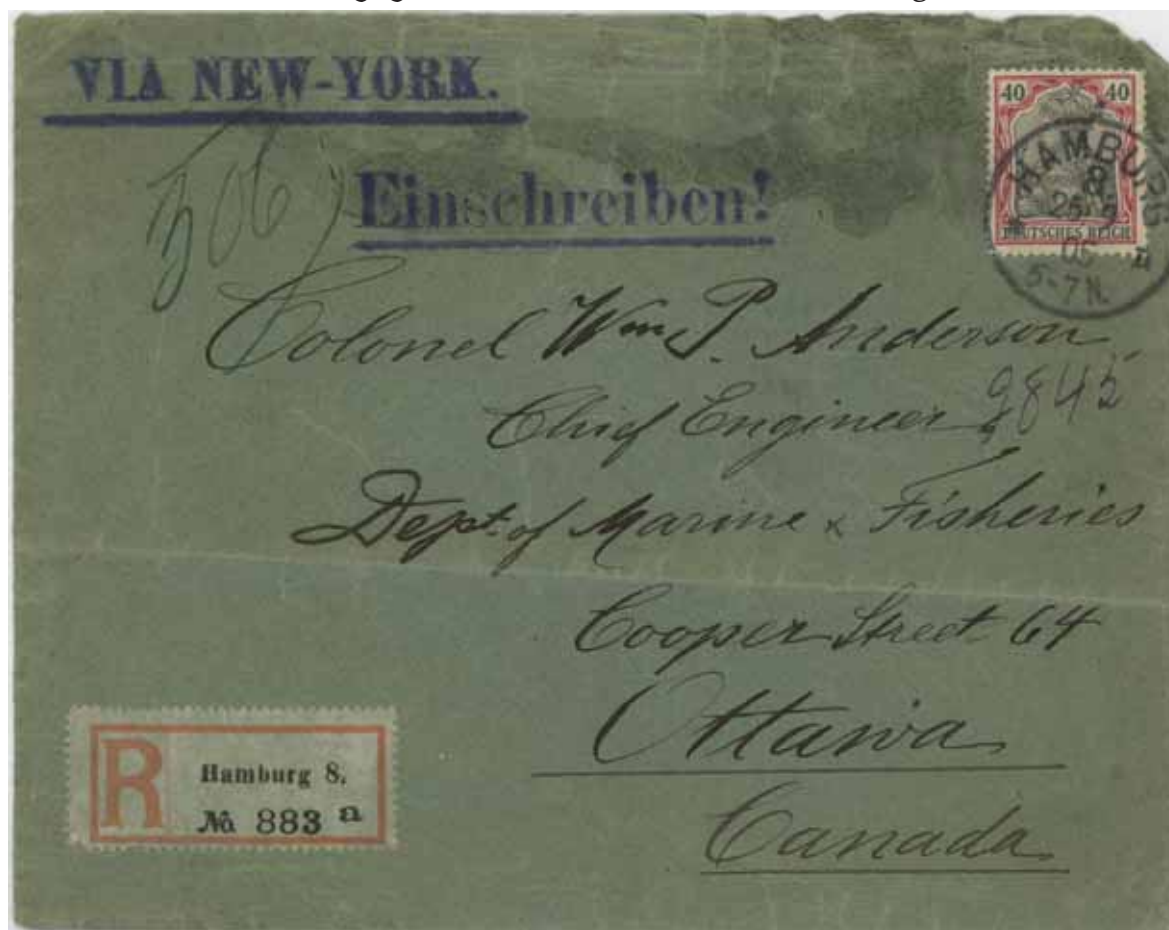 VIA NEW-YORK.
40 40
DEUTSCHES REICH
HAMBURG
8
05
5-7N.
Einschreiben!
Colonel Wm P. Anderson,
Chief Engineer
9845
Dept. of Marine & Fisheries
Cooper Street 64
Ottawa
Canada
R
Hamburg 8.
No 883 a